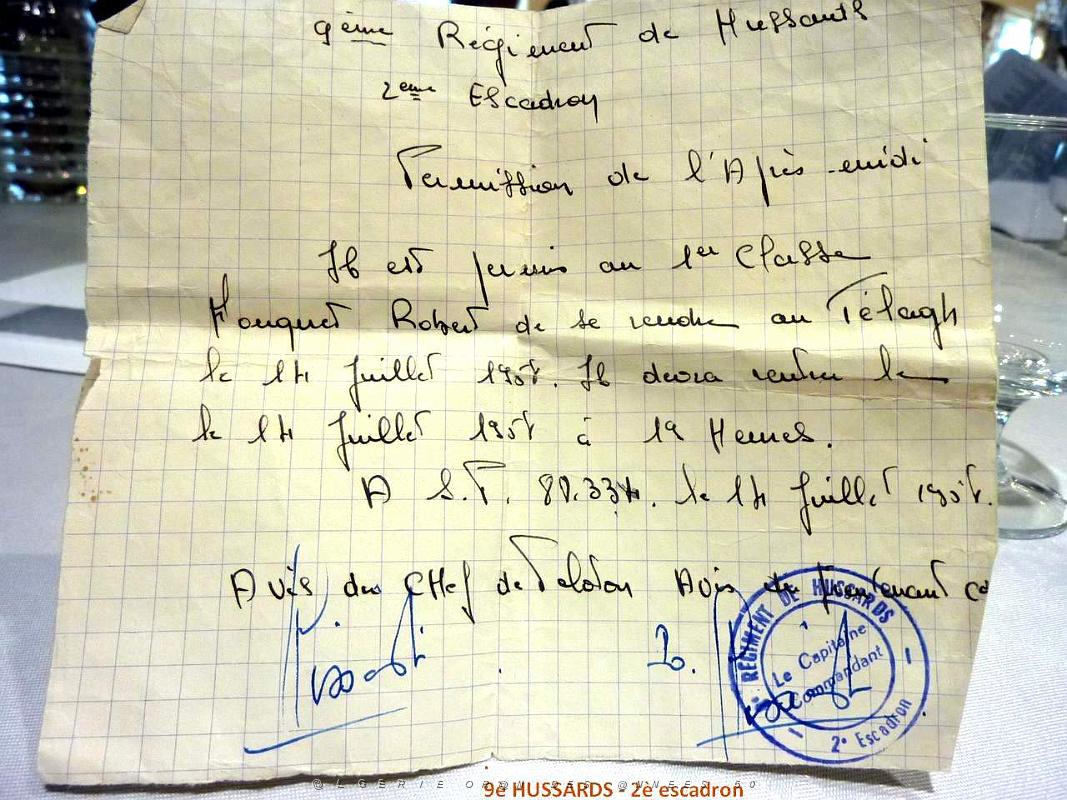 9ème Régiment de Hussards
2ème Escadron
Permission de l'Après-midi
Il est permis au 1er Classe
Fouquet Robert de se rendre au Télagh
le 14 Juillet 1958. Il devra rentrer le
le 14 Juillet 1958 à 19 Heures.
A S.P. 88.334. le 14 Juillet 1958.
Avis du Chef de Peloton Avis du Lieutenant
REGIMENT DE HUSSARDS
Le Capitaine
Commandant
2e Escadron
9è HUSSARDS - 2è escadron